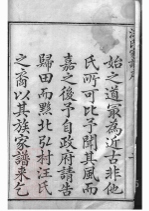 始之道家為近古非他
氏所可比予聞其風而
嘉之後予自政府請告
歸田而黟北弘村汪氏
之裔以其族家譜來乞